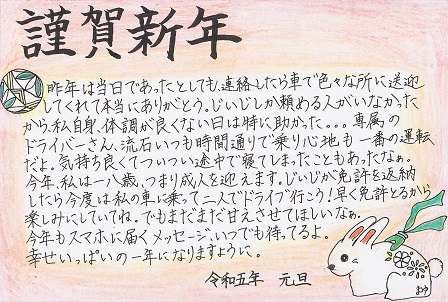 謹賀新年
昨年は当日であったとしても、連絡したら車で色々な所に送迎
してくれて本当にありがとう。じいじしか頼める人がいなかった
から、私自身、体調が良くない日は特に助かった。。。専属の
ドライバーさん、流石いつも時間通りで乗り心地も一番の運転
だよ。気持ち良くてついつい途中で寝てしまったこともあったなぁ。
今年、私は一八歳、つまり成人を迎えます。じいじが免許を返納
したら今度は私の車に乗って二人でドライブ行こう!早く免許とるから
楽しみにしていね。でもまだまだ甘えさせてほしいなぁ。
今年もスマホに届くメッセージ、いつでも待ってるよ。
幸せいっぱいの一年になりますように。
令和五年 元旦